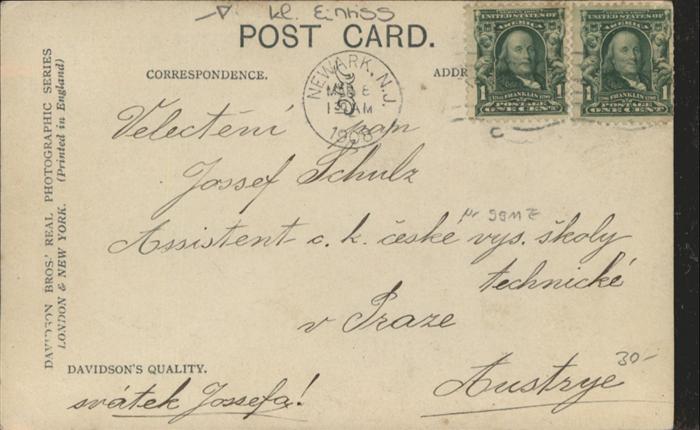 kl. Einriss
POST CARD.
CORRESPONDENCE.
ADDR
NEWARK, N.J.
1908
UNITED STATES OF AMERICA
1 FRANKLIN 1
POSTAGE ONE CENT
UNITED STATES OF AMERICA
1 FRANKLIN 1
POSTAGE ONE CENT
DAVIDSON BROS.' REAL PHOTOGRAPHIC SERIES
LONDON & NEW YORK. (Printed in England)
Velectění pan
Jossef Schulz
Assistent c. k. české vys. školy
technické
v Praze
30-
Austrye
DAVIDSON'S QUALITY.
svátek Jossefa!